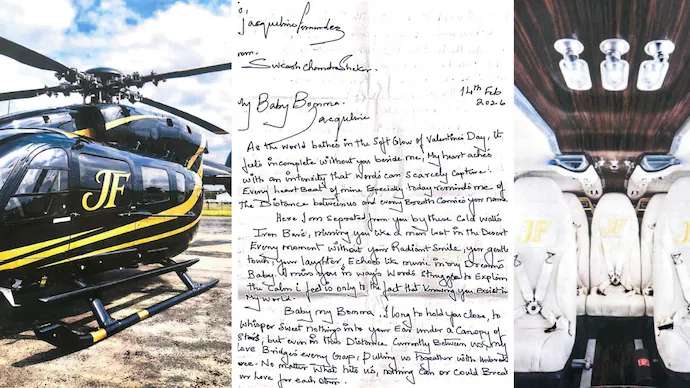 JF
To,
Jacqueline Fernandez
From,
Sukash Chandrashekar.
14th Feb
2026
My Baby Bomma.
Jacqueline
As the world bathes in the Soft Glow of Valentines Day, It
feels incomplete without you beside me, My heart aches
with an intensity that words can scarcely capture!
Every heart Beat of mine Especially today reminds me of
The Distance between us and every Breath Carries your Name
Here I am separated from you by these Cold walls
Iron Bars, Missing you like a man lost in the Desert
Every moment without your Radiant Smile, your gentle
touch, your laughter, Echoes like music in my dreams
Baby I miss you in ways words Struggle to Explain
the Calm I feel is only to the fact that knowing you Exist in
My world.
Baby my Bomma, I long to hold you close, to
whisper Sweet nothing into your Ear under a Canopy of
Stars, but even in this Distance Currently Between us, my
Love Bridges every Gap, Pulling us together with
No matter what hits us, nothing Can or Could Break
our Love for each other.
JF
JF